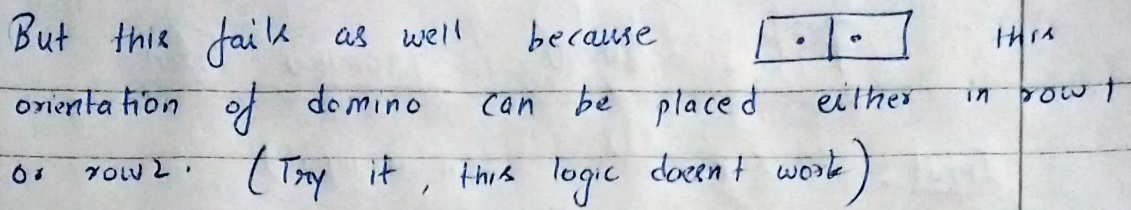 But this fails as well because this
orientation of domino can be placed either in row 1
or row 2. (Try it, this logic doesn't work)